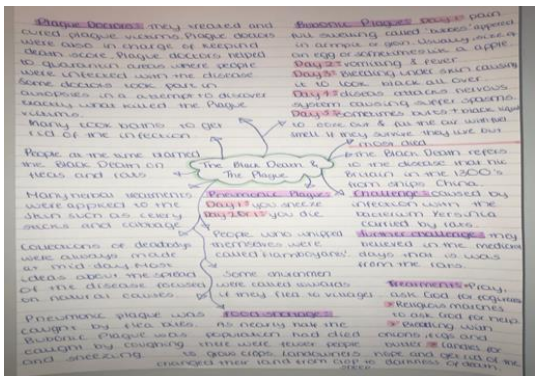 Plague Doctors: They treated and
cured plague victims. Plague doctors
were also in charge of keeping
death score. Plague doctors helped
to quarantine areas where people
were infected with the disease
Some doctors took part in
autopsies in a attempt to discover
exactly what killed the Plague
victims.
Many took baths to get
rid of the infection
People at the time blamed
the Black Death on
fleas and rats
Many herbal treatments
were applied to the
skin such as celery
sticks and cabbage
Collections of deadbodys
were always made
at mid day. Most
ideas about the spread
of the disease focused
on natural causes.
Pneumonic plague was
caught by flea bites.
Bubonic Plague was
caught by coughing
and sneezing.
The Black Death &
The Plague
Pneumonic Plague
Day 1: you sneeze
you die
People who whipped
themselves were
called
Some
were called
if they fled to villages
Food shortages
As nearly half the
population had died
there were fewer people
to grow crops. Landowners
changed their land from crop to
sheep
Bubonic Plague: Day 1: pain
full swelling called 'buboes' appered
in armpit or groin. Usually size of
an egg or sometimes like a apple.
Day 2: vomiting & fever
Day 3: Bleeding under skin causing
it to look black all over
Day 4: disease attacks nervous
system causing suffer spasms.
Day 5: sometimes buboes + black liquid
to ooze out & fill the air with bad
smell if they survive they live but
most died
The Black Death refers
to the disease that hit
Britain in the 1300's
from ships China.
Challenge: caused by
infection with the
bacterium
carried by rats.
further challenge: they
believed in the medieval
days that is was
from the rats.
Treatments: Pray,
ask God for forgiveness
Religious marches
to ask God for help.
onions, figs and
butter Candles for
hope and get rid of the
darkness of death.